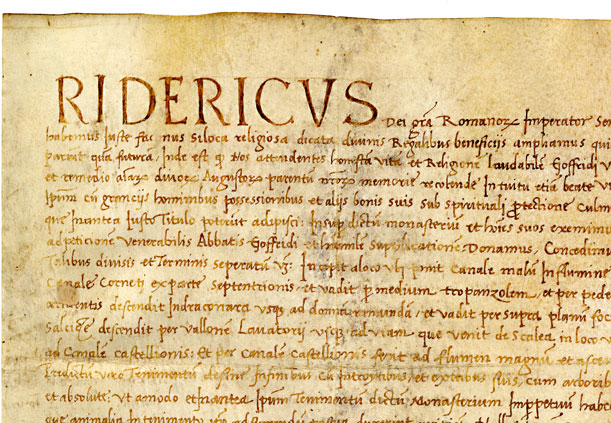 RIDERICVS Dei gr̃a Romanoꝝ Imperator Sem
habemus Iuste fac nus Si loca religiosa dicata diuinis Regalibus beneficijs ampliamus qui
parcit quã futura. Inde est q̃ Nos attendentes honesta vita et Religione laudabile Goffridi V
et remedio alaꝝ diuoꝝ Augustoꝝ parentũ nr̃oꝝ memorie recolende Intuitu etiã beate V
Ipsum cũ grancijs hominibus possessionibus et alijs bonis suis sub spirituali ꝓtectione Culm
que Inantea Iusto Titulo poterit adipisci: Insup dictũ monasteriũ et hoĩes suos eximimu
ad peticionẽ Venerabilis Abbatis Goffridi et humile Supplicatione: Donamus, Concedimu
Talibus diuisis et Terminis seperatũ Vz: Incipit a loco vbi ponit Canale malũ In flumine
Canale Corneti ex parte Septentrionis, et vadit p medium tropanzolem, et per pede
accidentis descendit In draconara usq ad domũ rimundã, et vadit per supra planũ foc
Salcise descendit per vallone Lauatorij usq ad viam que venit de Scalea, in loco v
ad Canale Castellionis: Et per Canale Castellionis ferit ad flumen magnũ et asce
Traditu vero Tenimentu de fine In finibus Cũ introytibus, et exitibus suis, Cum arborib
et absolute: Ut amodo et Inantea Ipsum Tenimentu dictũ Monasterium Imperpetuũ habe
que animalia In tenimento